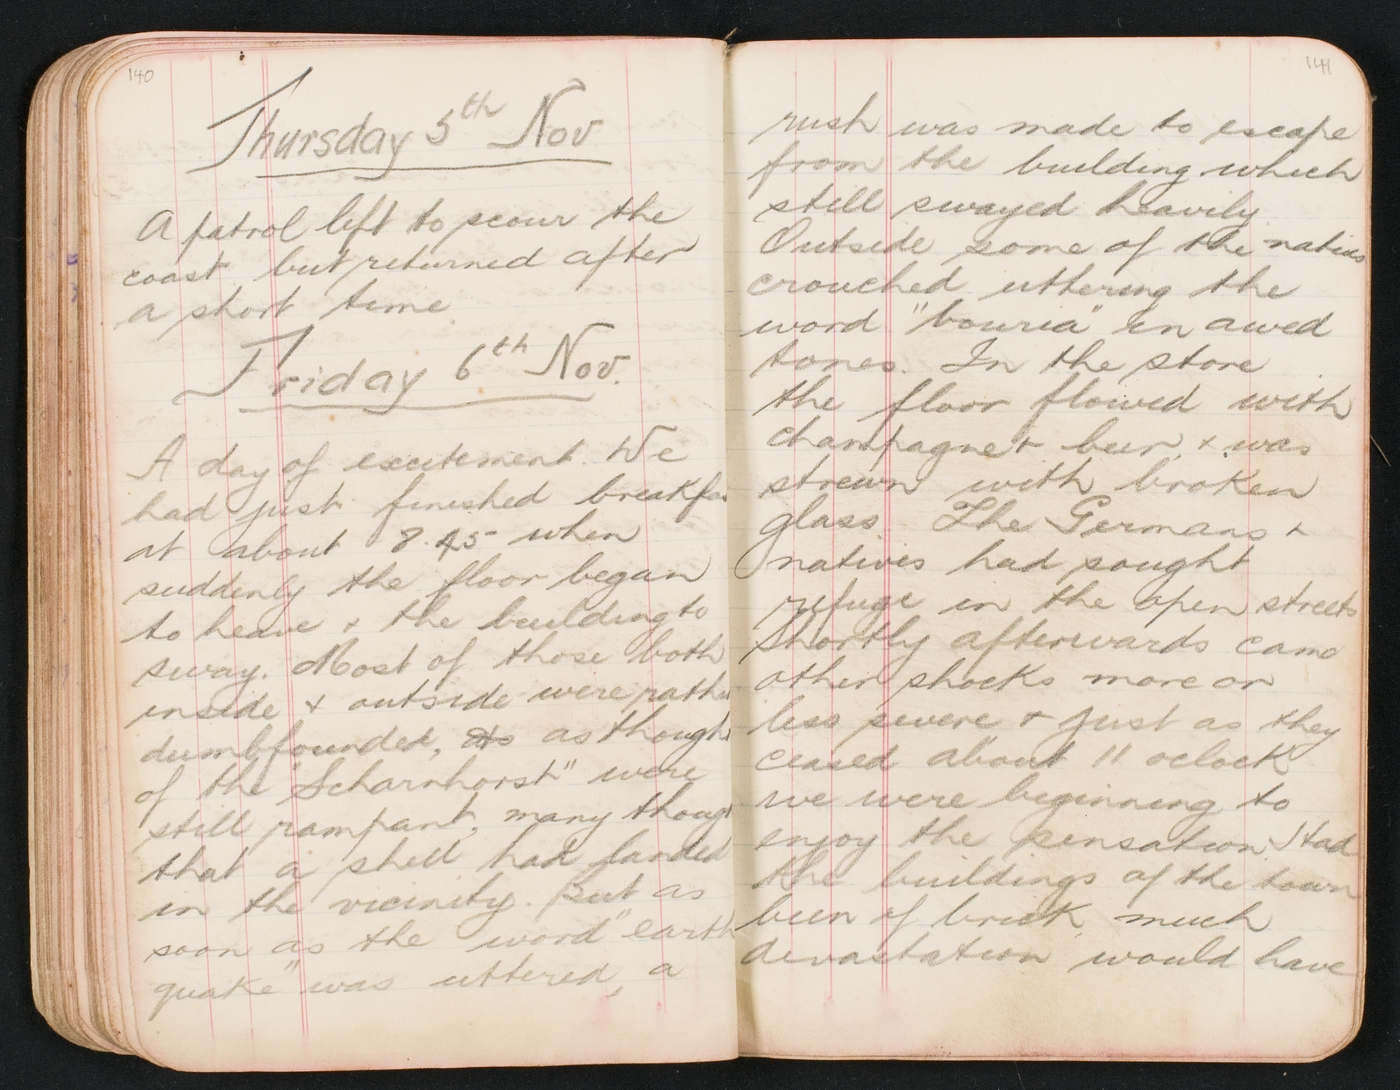 140
Thursday 5th Nov
A patrol left to scour the
coast but returned after
a short time
Friday 6th Nov.
A day of excitement. We
had just finished breakfas
at about 8.45 when
suddenly the floor began
to heave & the building to
sway. Most of those both
inside & outside were rather
dumbfounded, as as though
of the "Scharnhorst" were
still rampant, many though
that a shell had landed
in the vicinity. But as
soon as the word "earth
quake" was uttered, a
141
rush was made to escape
from the building which
still swayed heavily.
Outside some of the natives
crouched uttering the
word "bouria" in awed
tones. In the store
the floor flowed with
champagne & beer, & was
strewn with broken
glass. The Germans &
natives had sought
refuge in the open streets
Shortly afterwards came
other shocks more or
less severe & just as they
ceased about 11 oclock
we were beginning to
enjoy the sensation. Had
the buildings of the town
been of brick, much
devastation would have